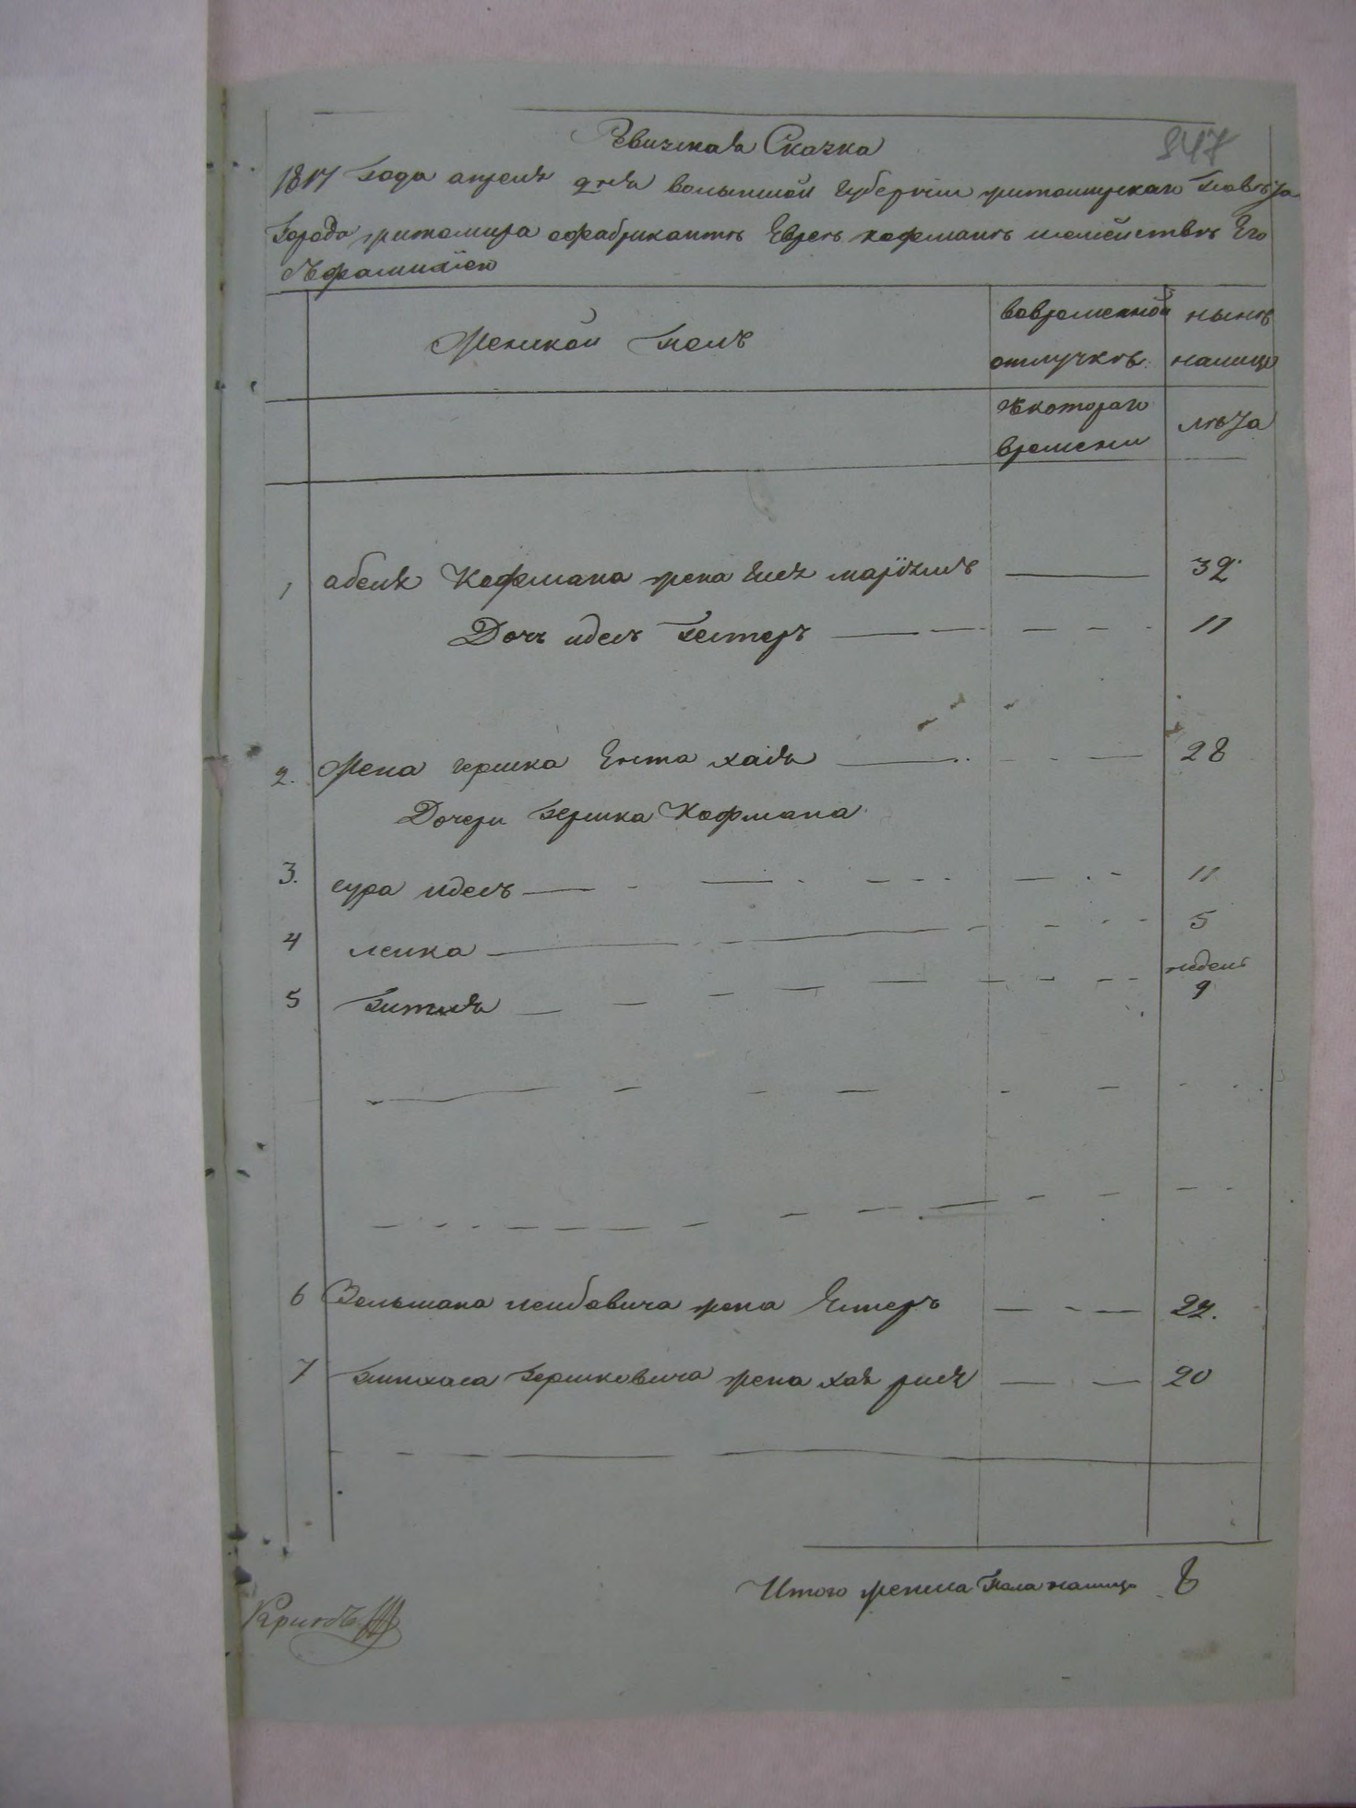 Ревизкая Сказка
847
1817 года апреля дня волынской губернии житомирскаго повета
города житомира офабрикантъ Еврея кофмана семейства Его
Съфамилiею
Женской полъ
вовременной отлучкѣ
нынѣ налицо
съкотораго времени
лѣта
1 абеля Кофмана жена Еля маріемъ 32
Дочь идесъ Гестеръ 11
2. Жена гершка Ента хаія 28
Дочери гершка Кофмана
3. сура идесъ 11
4 леика 5
5 гитля недель 9
6 Зельмана леибовича жена Естеръ 24.
7 пинхаса гершковича жена хая рися 20
Итого женска пола налицо 8